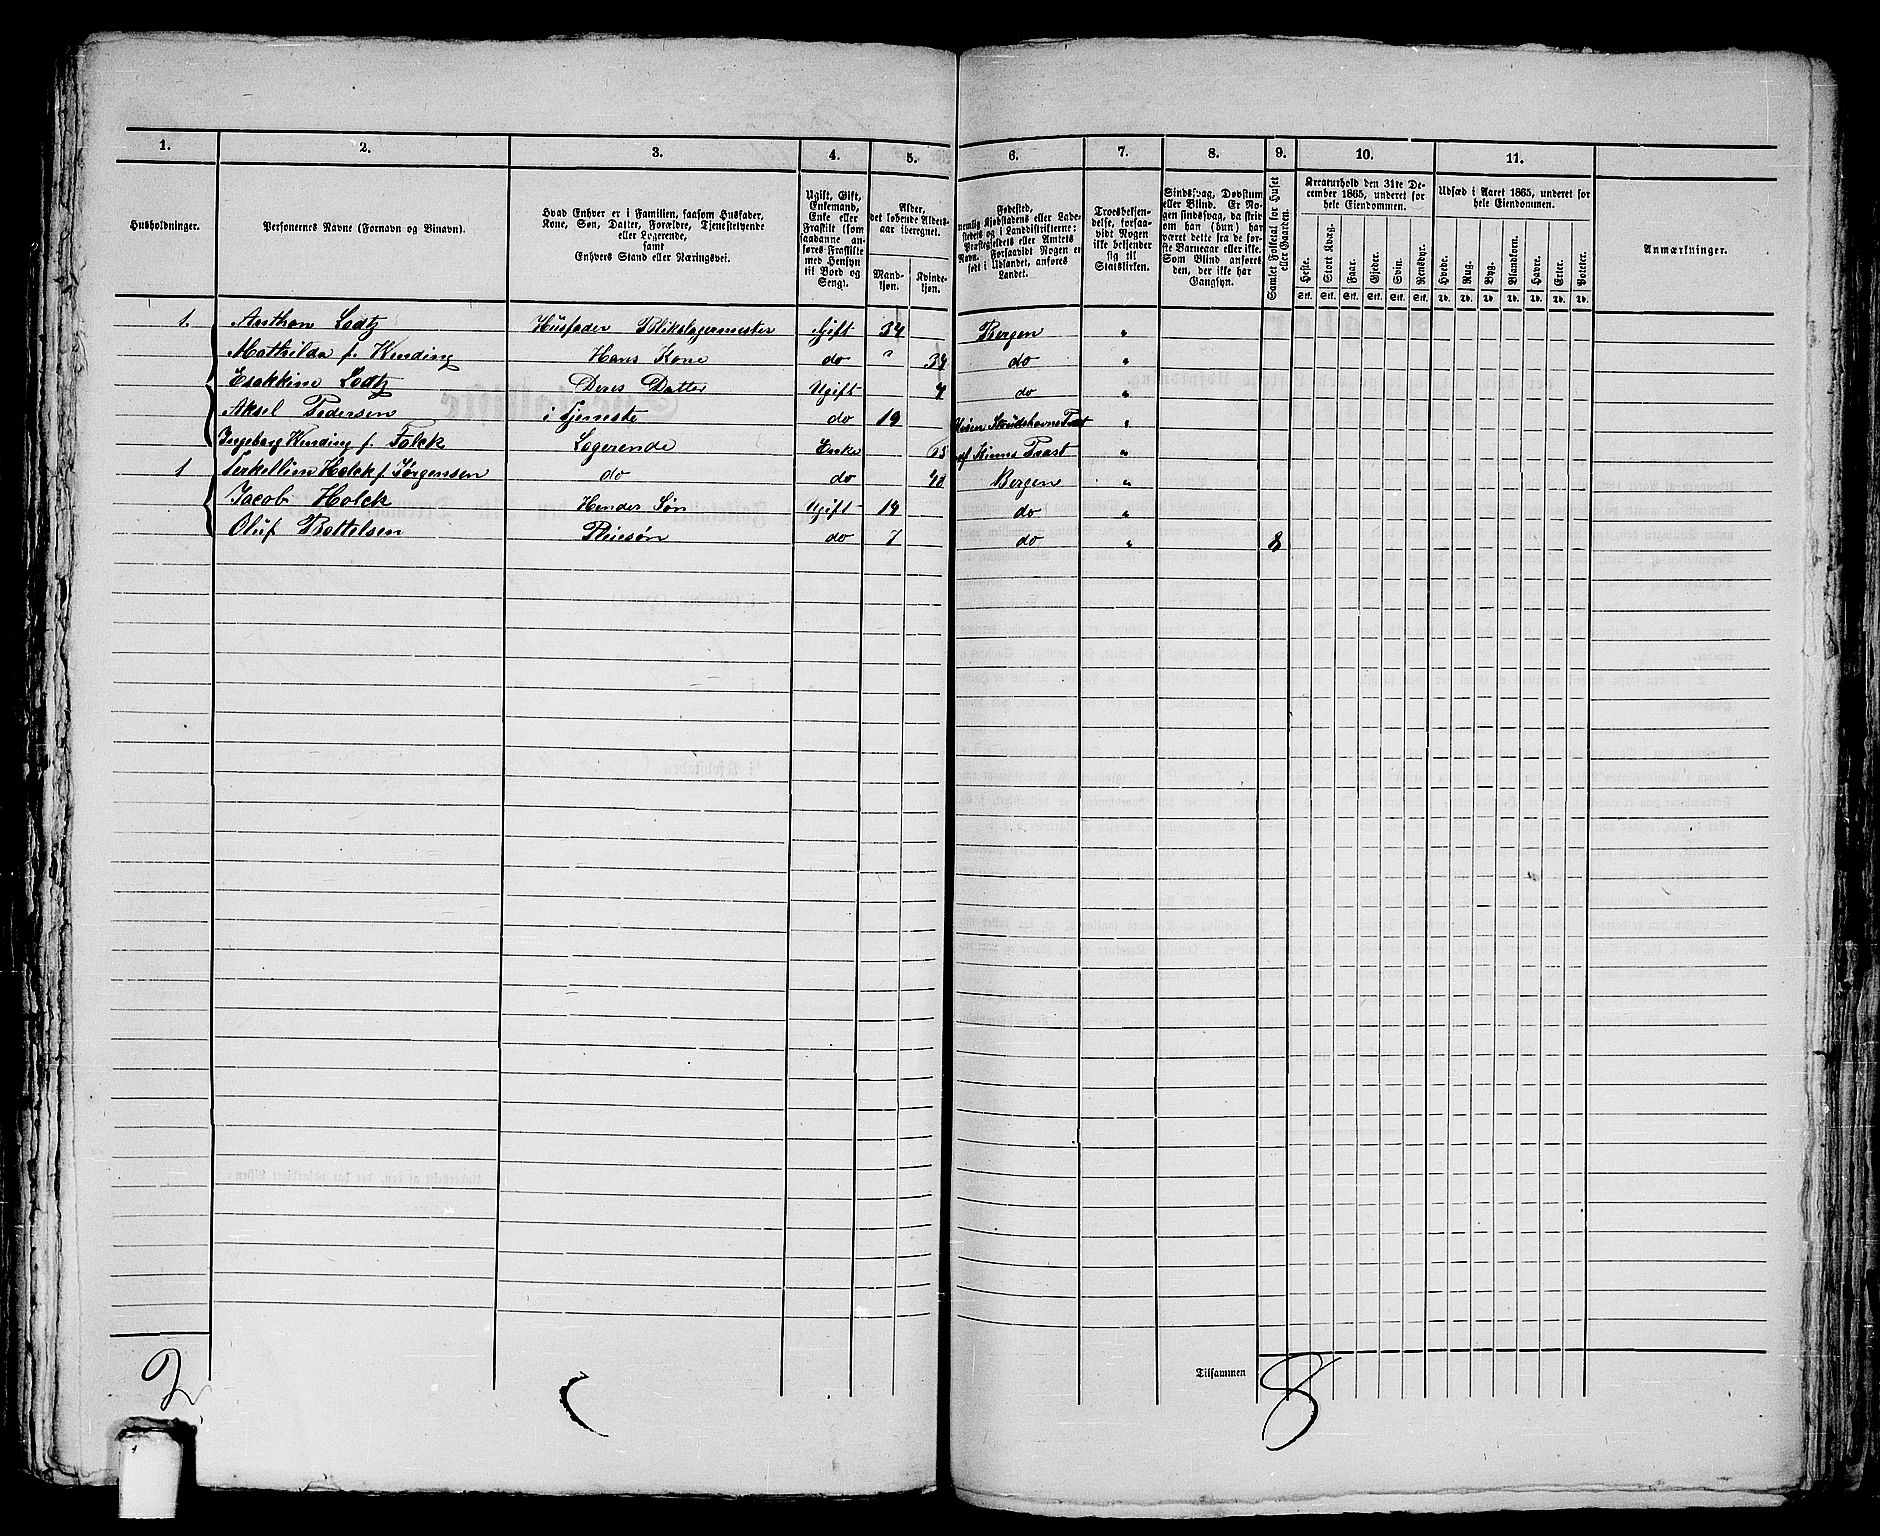 1. 2. 3. 4. 5. 6. 7. 8. 9. 10. 11.
Husholdninger.
Personernes Navne (Fornavn og Binavn).
Hvad Enhver er i Familien, saasom Husfader, Kone, Søn, Datter, Forældre, Tjenestetyende eller Logerende, samt Enhvers Stand eller Næringsvei.
Ugift, Gift, Enkemand, Enke eller Fraskilt (som saadanne anføres Fraskilte med Hensyn til Bord og Seng).
Alder, det løbende Alders-aar iberegnet.
Mand-kjøn. Kvinde-kjøn.
Fødested, nemlig Kjøbstadens eller Ladestedets og i Landdistrikterne: Præstegjeldets eller Amtets Navn. Forsaavidt Nogen er født i Udlandet, anføres Landet.
Troesbekjendelse, forsaavidt Nogen ikke bekjender sig til Statskirken.
Sindssvag, Døvstum eller Blind. Er Nogen sindssvag, da skrives om han (hun) har været dette fra de første Barneaar eller ikke. Som Blind anføres den, der ikke har Gangsyn.
Samlet Folketal for Huset eller Gaarden.
Kreaturhold den 31te December 1865, underet for hele Eiendommen.
Heste. Stort Kvæg. Faar. Gjeder. Svin. Rensdyr.
Stk. Stk. Stk. Stk. Stk. Stk.
Udsæd i Aaret 1865, underet for hele Eiendommen.
Hvede. Rug. Byg. Blandkorn. Havre. Erter. Poteter.
Td. Td. Td. Td. Td. Td. Td.
Anmærkninger.
1. Anthon Lodtz Husfader Blikslagermester Gift 34 Bergen "
Mathilda f. Kinding Hans Kone do " 34 do "
Lodtz Deres Datter Ugift 4 do "
Aksel Pedersen i tjeneste do 19 "
Ingeborg Kinding f. Falck Logerende Enke 65 "
1 Holck f Jørgensen do do 40 Bergen "
Jacob Holck Hendes Søn Ugift 19 do "
Oluf Bottelsen Pleiesøn do 7 do " 8
2 Tilsammen 8